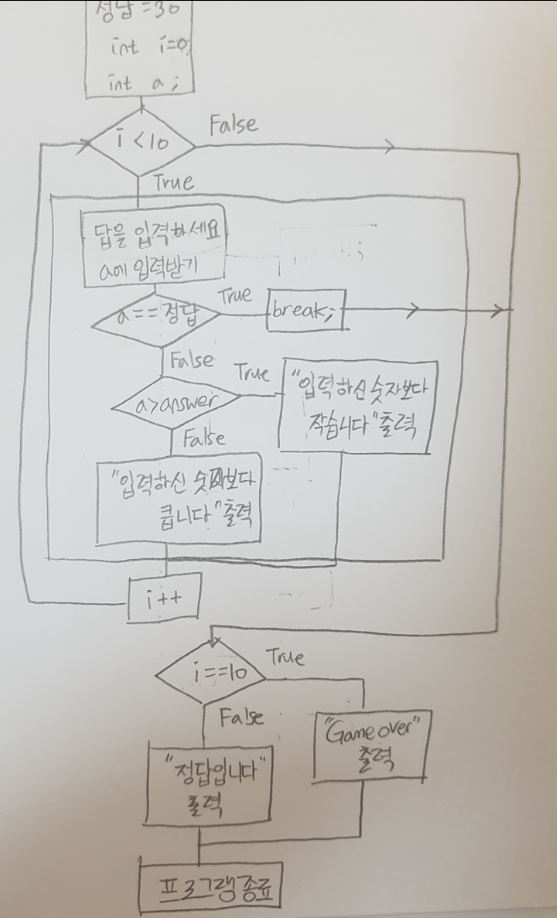 정답 =30
int i=0;
int a ;
i <10
False
True
답을 입력하세요
a에 입력받기
a==정답
True
break;
False
a>answer
True
"입력하신 숫자보다
작습니다" 출력
False
"입력하신 숫자보다
큽니다" 출력
i++
i==10
True
False
"Game over"
출력
"정답입니다"
출력
프로그램종료